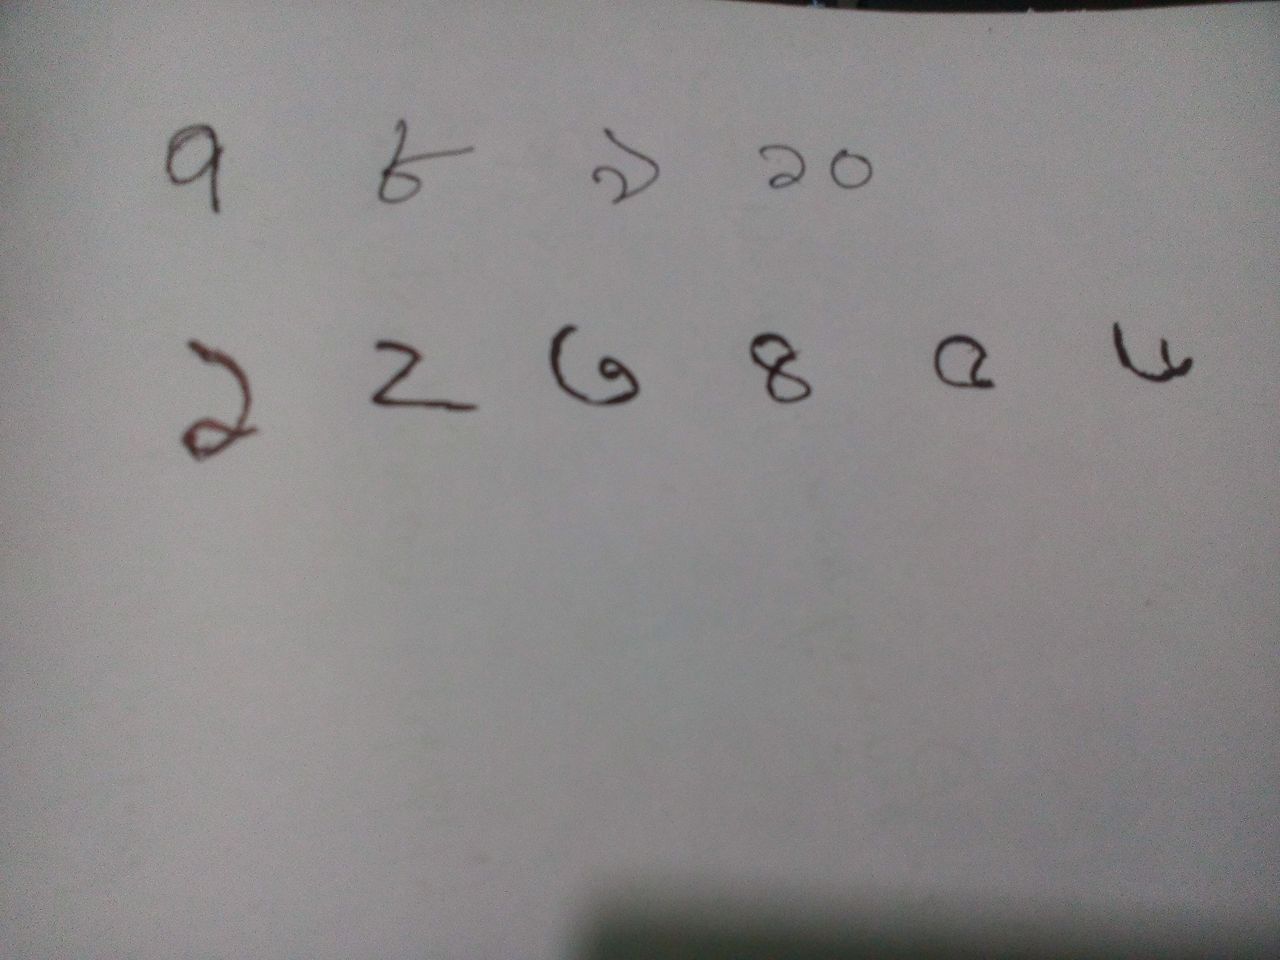 ৭ ৮ ৯ ১০
১ ২ ৩ ৪ ৫ ৬